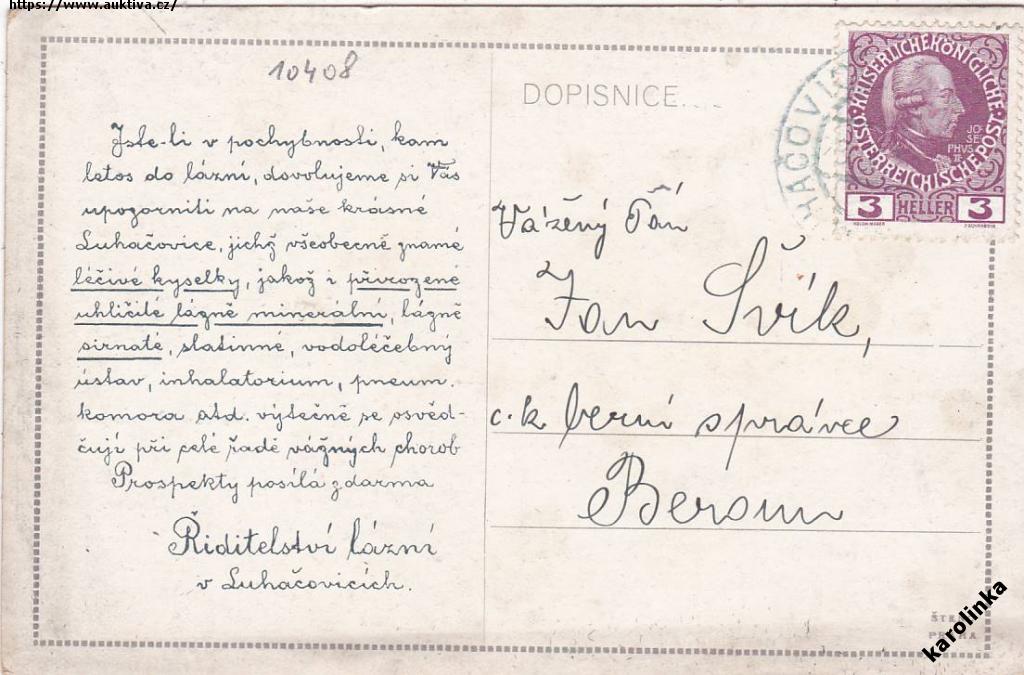 https://www.auktiva.cz/
10408
DOPISNICE
Jste-li v pochybnosti, kam
letos do lázní, dovolujeme si Vás
upozorniti na naše krásné
Luhačovice, jichž všeobecně známé
léčivé kyselky, jakož i přirozené
uhličité lázně minerální, lázně
sirnaté, slatinné, vodoléčebný
ústav, inhalatorium, pneum.
komora atd. výtečně se osvěd-
čují při celé řadě vážných chorob
Prospekty posílá zdarma
Ředitelství lázní
v Luhačovicích.
HAČOVIC
KAISERLICHE KÖNIGLICHE
ÖSTERREICHISCHE POST
JO-
SE-
PHVS
II
3 HELLER 3
Vážený Pán
Jan Švík,
c.k. berní správce
Beroun
PRAHA
karolinka